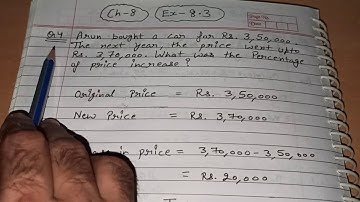 Ch-8 Ex-8.3
Q.4 Arun bought a car for Rs. 3,50,000.
The next year, the price went upto
Rs. 3,70,000. What was the Percentage
of price increase?
Original Price = Rs. 3,50,000
New Price = Rs. 3,70,000
in price = 3,70,000 - 3,50,000
= Rs. 20,000